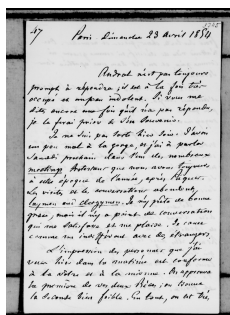 47
Paris Dimanche 23 Avril 1854
Andral n'est pas toujours
prompt à répondre ; il est à la fois très
occupé et un peu indolent. Si vous me
dites encore une fois qu'il n'a pas répondu,
je le ferai prier de s'en souvenir.
Je ne suis pas sorti hier soir. J'avais
un peu mal à la gorge, et j'ai à parler
Samedi prochain dans l'un des nombreux
meetings Protestans que nous avons toujours
à cette époque de l'année, après Pâques.
Les visites et les conversations abondent,
laymen and clergymen. Je m'y prête de bonne
grâce, mais il n'y a point de conversation
qui me satisfasse et me plaise. Je cause
comme un indifférent avec des étrangers.
L'impression des personnes que j'ai
vues hier dans la matinée est conforme
à la vôtre et à la mienne. On approuve
la première des deux pièces ; on trouve
la seconde bien faible. En tout, on est très